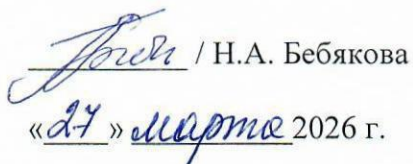 / Н.А. Бебякова
«27» марта 2026 г.